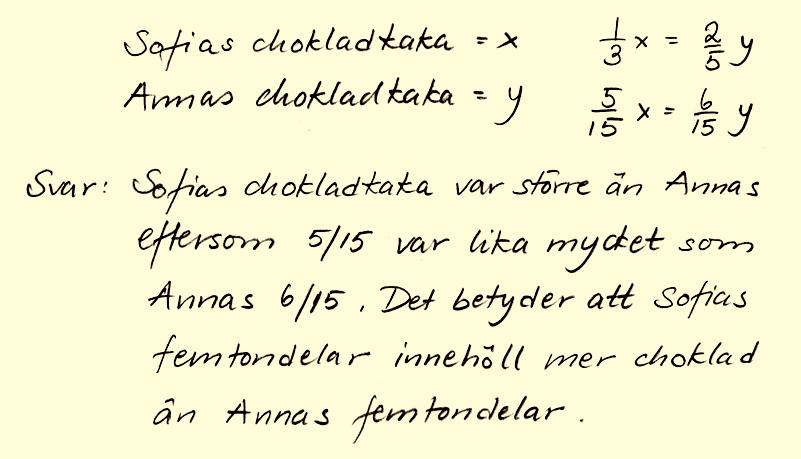 Sofias chokladkaka = x 1/3 x = 2/5 y
Annas chokladkaka = y 5/15 x = 6/15 y
Svar: Sofias chokladkaka var större än Annas
eftersom 5/15 var lika mycket som
Annas 6/15. Det betyder att Sofias
femtondelar innehöll mer choklad
än Annas femtondelar.